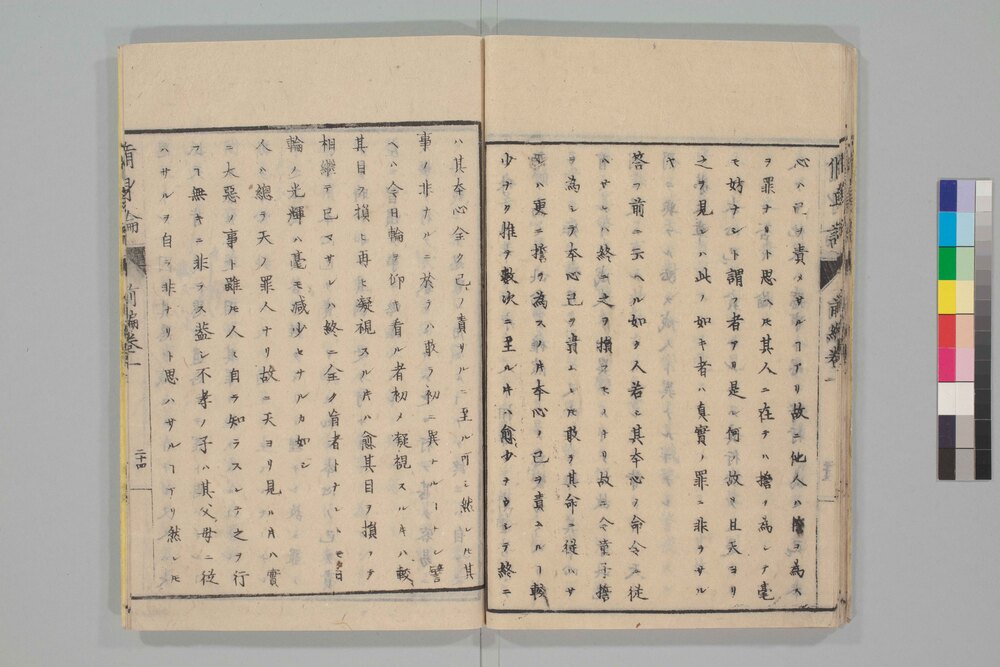 心ハ己ヲ責メサルヿアリ故ニ他人ハ擔ヲ為ヘ
ヲ罪ナリト思ヘトモ其人ニ在テハ擔ヲ為シテ毫
モ妨ナシト謂フ者アリ是レ何ノ故ソ且天ヨリ
之ヲ見レハ此ノ如キ者ハ真實ノ罪ニ非サル
ヤ
答フ前ニ云ヘル如ク人若シ其本心ノ命令ニ従
ハサレハ終ニ之ヲ損フニモノナリ故ニ今童子擔
ヲ為シテ本心己ヲ責ムレトモ敢テ其命ニ従ハサ
レハ更ニ擔ヲ為スノ片本心ノ己ヲ責ムルヿ較
少ナク推テ數次ニ至ル片ハ愈少ナウシテ終ニ
ハ其本心全ク己ノ責リルニ至ル可シ然レトモ其
事ノ非ナルニ於テハ敢テ初ニ異ナルヿナシ譬
ヘハ今日輪ヲ仰キ看ル者初ノ凝視スル片ハ較
其目ヲ損ヒ再ヒ凝視スル片ハ愈其目ヲ損フテ
相繼テ已マサレハ終ニ全ク盲者トナレトモ日
輪ノ光輝ハ毫モ減少セサルカ如シ
人ハ總テ天ノ罪人ナリ故ニ天ヨリ見ル片ハ實
ニ大惡ノ事ト雖トモ人ニ自ラ知ラスシテ之ヲ行
フヿ無キニ非ラス蓋シ不孝ノ子ハ其父母ニ従
ハサルヲ自ラ非ナリト思ハサルヿアリ然レトモ
脩身論 前編卷一 二十四